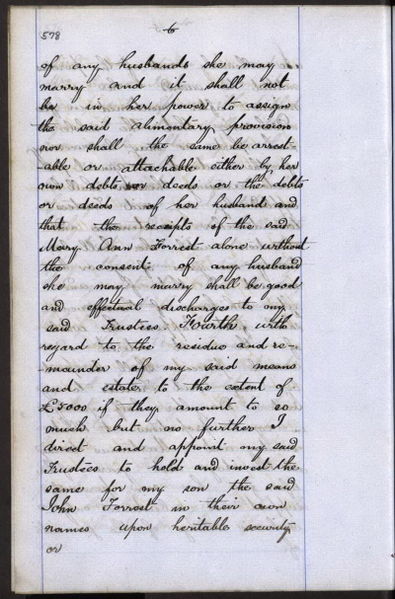 578
6
of any husbands she may
marry and it shall not
be in her power to assign
the said alimentary provision
nor shall the same be arrest-
-able or attachable either by her
own debts or deeds or the debts
or deeds of her husband and
that the receipts of the said
Mary Ann Forrest alone without
the consent of any husband
she may marry shall be good
and effectual discharges to my
said Trustees. Fourth, with
regard to the residue and re-
-mainder of my said means
and estate, to the extent of
£5000 if they amount to so
much but no further I
direct and appoint my said
Trustees to hold and invest the
same for my son the said
John Forrest in their own
names upon heritable security
or